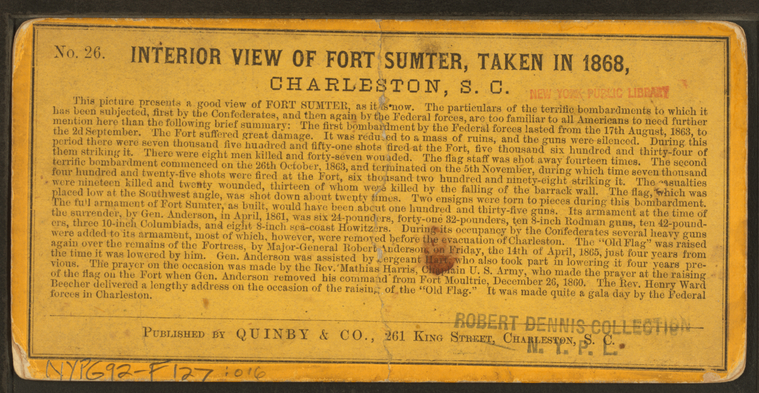 No. 26. INTERIOR VIEW OF FORT SUMTER, TAKEN IN 1868,
CHARLESTON, S. C.
NEW YORK PUBLIC LIBRARY
This picture presents a good view of FORT SUMTER, as it is now. The particulars of the terrific bombardments to which it
has been subjected, first by the Confederates, and then again by the Federal forces, are too familiar to all Americans to need further
mention here than the following brief summary: The first bombardment by the Federal forces lasted from the 17th August, 1863, to
the 2d September. The Fort suffered great damage. It was reduced to a mass of ruins, and the guns were silenced. During this
period there were seven thousand five hundred and fifty-one shots fired at the Fort, five thousand six hundred and thirty-four of
them striking it. There were eight men killed and forty-seven wounded. The flag staff was shot away fourteen times. The second
terrific bombardment commenced on the 26th October, 1863, and terminated on the 5th November, during which time seven thousand
four hundred and twenty-five shots were fired at the Fort, six thousand two hundred and ninety-eight striking it. The casualties
were nineteen killed and twenty wounded, thirteen of whom were killed by the falling of the barrack wall. The flag, which was
placed low at the Southwest angle, was shot down about twenty times. Two ensigns were torn to pieces during this bombardment.
The full armament of Fort Sumter, as built, would have been about one hundred and thirty-five guns. Its armament at the time of
the surrender, by Gen. Anderson, in April, 1861, was six 24-pounders, forty-one 32-pounders, ten 8-inch Rodman guns, ten 42-pound-
ers, three 10-inch Columbiads, and eight 8-inch sea-coast Howitzers. During its occupancy by the Confederates several heavy guns
were added to its armament, most of which, however, were removed before the evacuation of Charleston. The "Old Flag" was raised
again over the remains of the Fortress, by Major-General Robert Anderson, on Friday, the 14th of April, 1865, just four years from
the time it was lowered by him. Gen. Anderson was assisted by Sergeant Hart, who also took part in lowering it four years pre-
vious. The prayer on the occasion was made by the Rev. Mathias Harris, Chaplain U. S. Army, who made the prayer at the raising
of the flag on the Fort when Gen. Anderson removed his command from Fort Moultrie, December 26, 1860. The Rev. Henry Ward
Beecher delivered a lengthy address on the occasion of the raising of the "Old Flag." It was made quite a gala day by the Federal
forces in Charleston.
PUBLISHED BY QUINBY & CO., 261 KING STREET, CHARLESTON, S. C.
ROBERT DENNIS COLLECTION
N. Y. P. L.
NYPG92-F127 :016